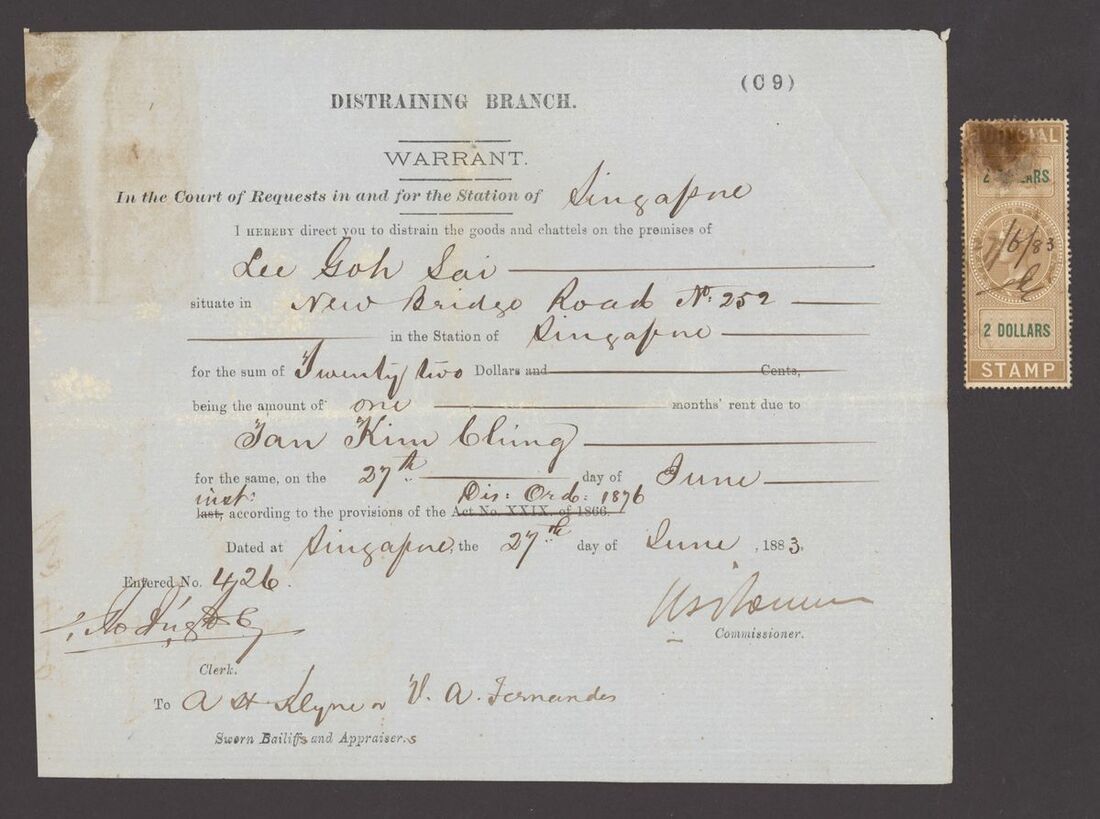 (C 9)
DISTRAINING BRANCH.
WARRANT.
In the Court of Requests in and for the Station of Singapore
I HEREBY direct you to distrain the goods and chattels on the premises of
Lee Goh Sai
situate in New Bridge Road No. 252
in the Station of Singapore
for the sum of Twenty two Dollars and Cents,
being the amount of one months' rent due to
Tan Kim Ching
for the same, on the 27th day of June
inst: Dis: Ord: 1876
last, according to the provisions of the Act No. XXIX. of 1866.
Dated at Singapore, the 27th day of June, 1883.
Entered No. 426.
Commissioner.
Clerk.
To A H Klyne or V. A. Fernandes
Sworn Bailiffs and Appraiser.s
JUDICIAL
2 DOLLARS
27/6/83
2 DOLLARS
STAMP